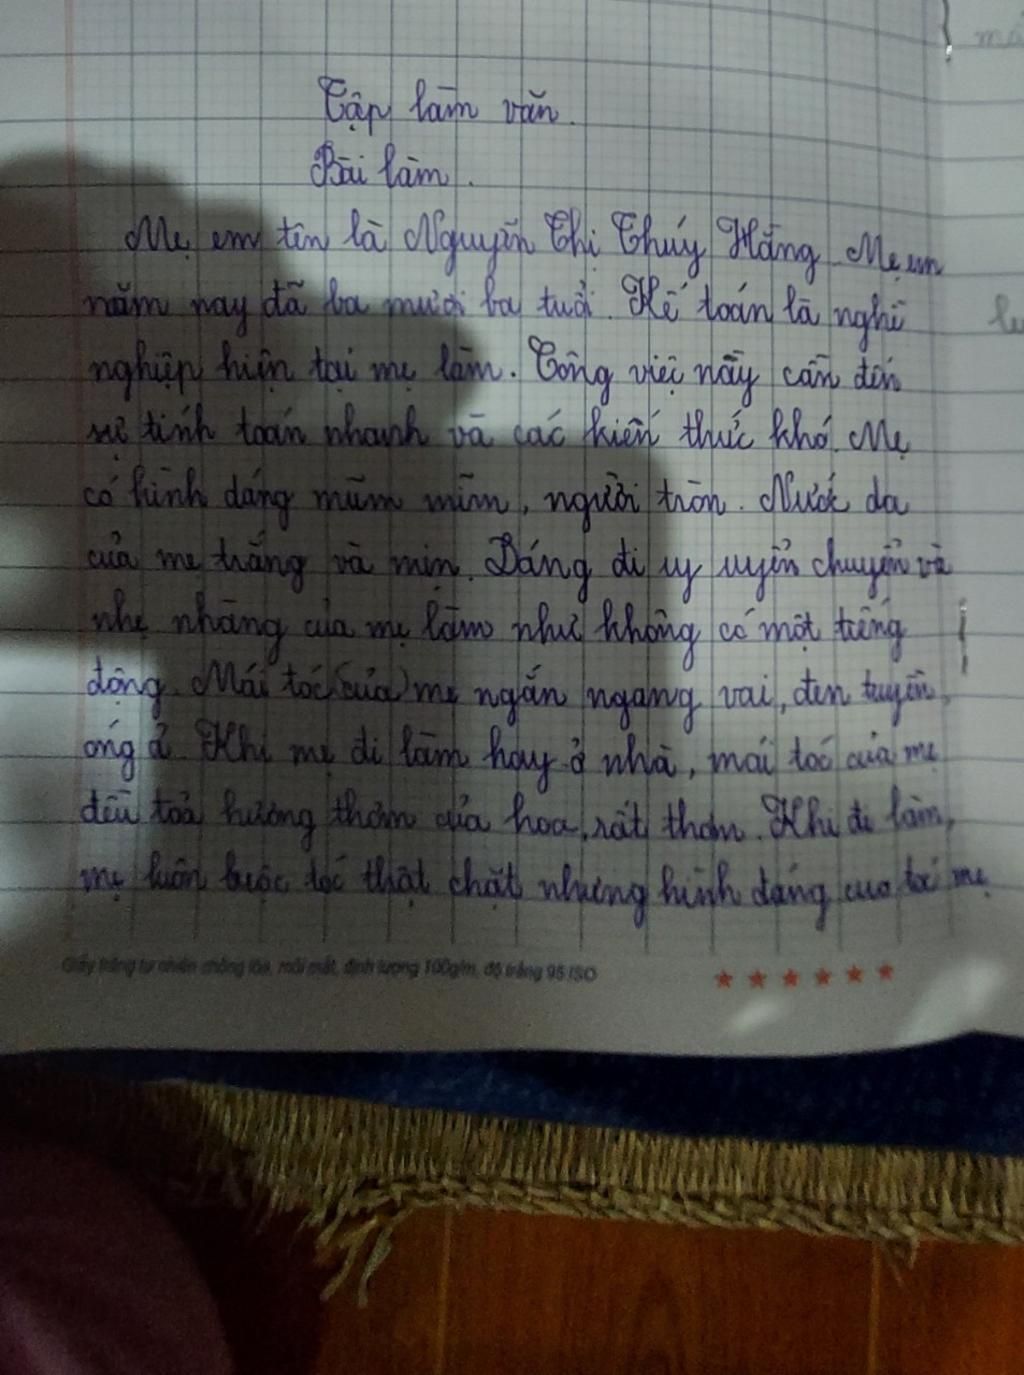 Tập làm văn.
Bài làm.
Mẹ em tên là Nguyễn Thị Thúy Hằng. Mẹ em
năm nay đã ba mươi ba tuổi. Kế toán là nghề
nghiệp hiện tại mẹ làm. Công việc này cần đến
sự tính toán nhanh và các kiến thức khó. Mẹ
có hình dáng mũm mĩm, người tròn. Nước da
của mẹ trắng và mịn. Dáng đi uy uyển chuyển và
nhẹ nhàng của mẹ làm như không có một tiếng
động. Mái tóc (của) mẹ ngắn ngang vai, đen tuyền,
óng ả. Khi mẹ đi làm hay ở nhà, mái tóc của mẹ
đều toả hương thơm của hoa, rất thơm. Khi đi làm,
mẹ luôn buộc tóc thật chặt nhưng hình dáng của tóc mẹ
Giấy trắng tự nhiên chống lóa, mỏi mắt, định lượng 100g/m, độ trắng 95 ISO